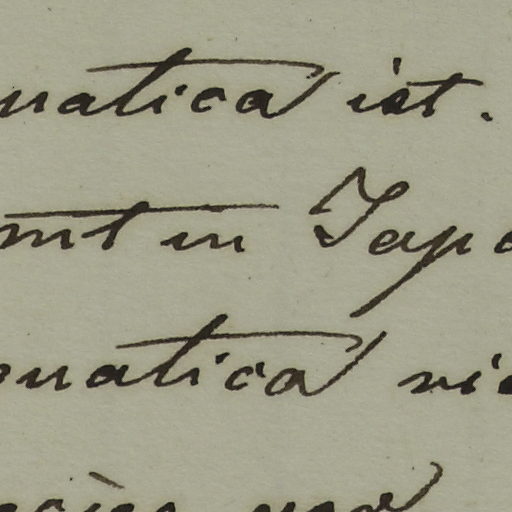 uatica ist.
mt in Japa
matica vie